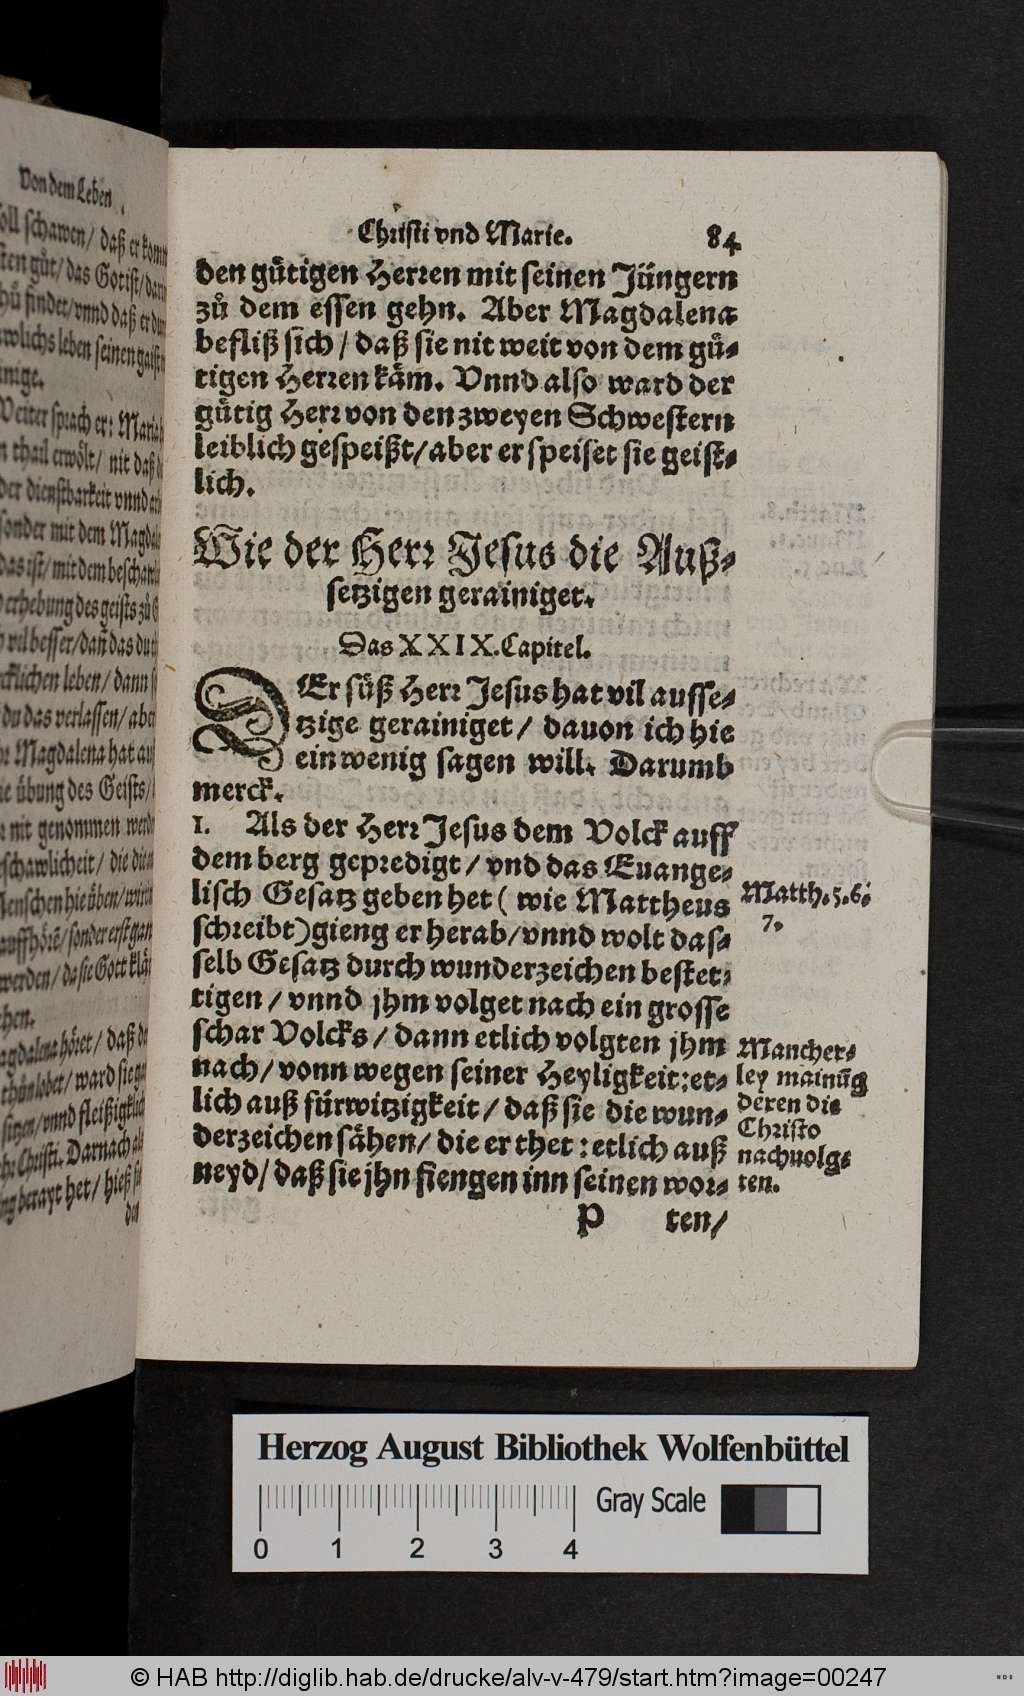 Von dem Leben
soll schawen/ daß er
das Gott ist/
findet/ vnnd daß er
leben seinen gaist
Weiter sprach er:
thail erwölt/ nit daß
der dienstbarkeit vnnd
sonder mit dem
das ist/ mit dem
erhebung des geists zů
vil besser/ dañ das
leben/ dann
du das verlassen/ aber
Magdalena hat
übung des Geists/
nit genommen
die
Menschen hie üben/
sonder erst
werden/ da sie Gott
höret/ daß
lobet/ ward sie
sitzen/ vnnd
Christi. Darnach
berayt het/ hieß
den
Christi vnd Marie. 84
den gůtigen Herren mit seinen Jüngern
zů dem essen gehn. Aber Magdalena
befliß sich/ daß sie nit weit von dem gů-
tigen Herren käm. Vnnd also ward der
gůtig Herr von den zweyen Schwestern
leiblich gespeißt/ aber er speiset sie geist-
lich.
Wie der Herr Jesus die Auß-
setzigen gerainiget.
Das XXIX. Capitel.
DEr süß Herr Jesus hat vil ausse-
tzige gerainiget/ dauon ich hie
ein wenig sagen will. Darumb
merck.
1. Als der Herr Jesus dem Volck auff
dem berg gepredigt/ vnd das Euange-
lisch Gesatz geben het (wie Mattheus
schreibt) gieng er herab/ vnnd wolt das-
selb Gesatz durch wunderzeichen bestet-
tigen/ vnnd jhm volget nach ein grosse
schar Volcks/ dann etlich volgten jhm
nach/ vonn wegen seiner Heyligkeit: et-
lich auß fürwitzigkeit/ daß sie die wun-
derzeichen sähen/ die er thet: etlich auß
neyd/ daß sie jhn fiengen inn seinen wor-
P ten/
Matth. 5. 6.
7.
Mancher-
ley mainũg
deren die
Christo
nachuolg-
ten.
Herzog August Bibliothek Wolfenbüttel
Gray Scale
0 1 2 3 4
© HAB http://diglib.hab.de/drucke/alv-v-479/start.htm?image=00247